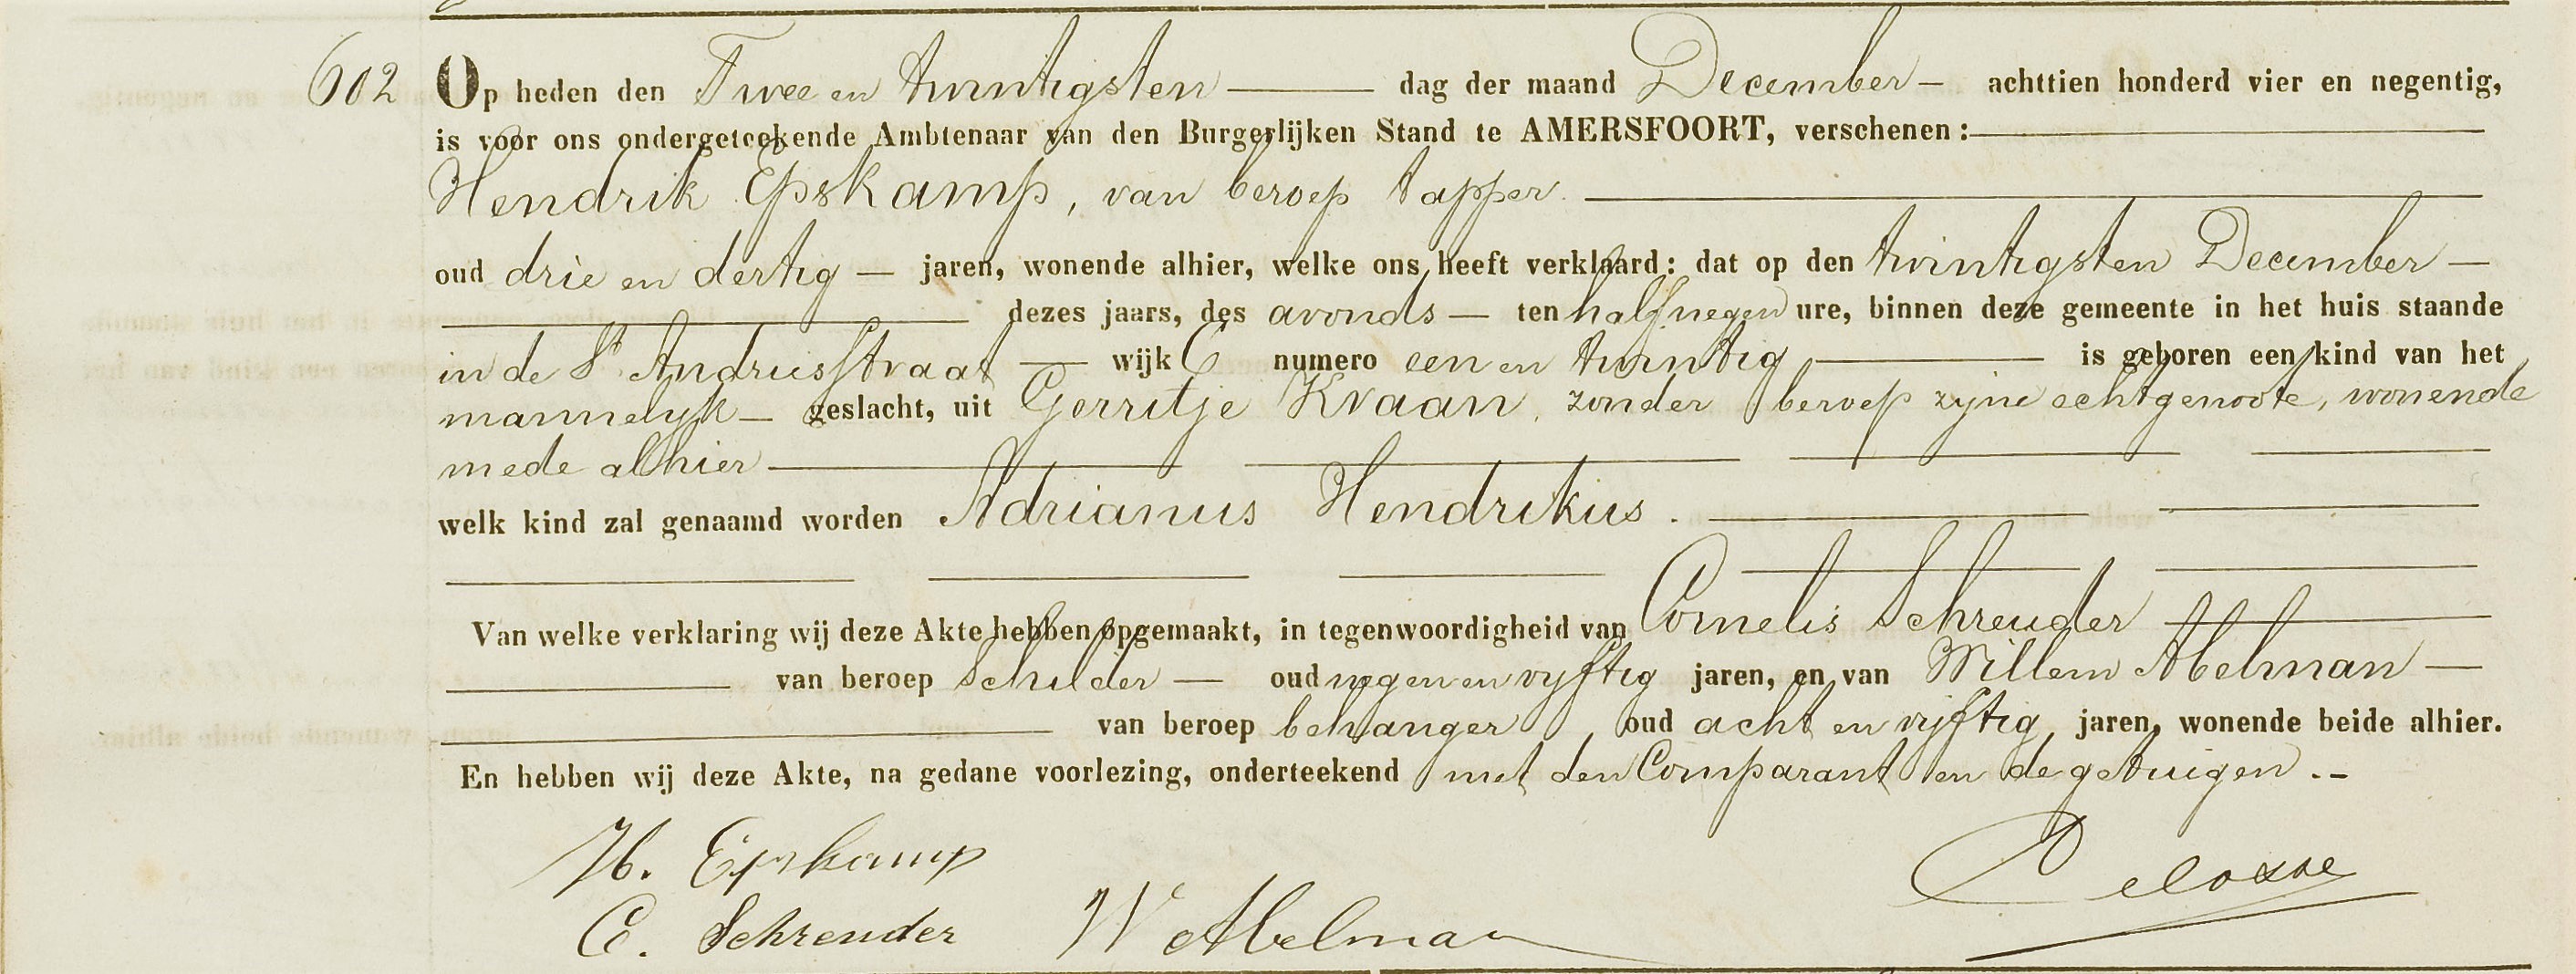 602 Op heden den Twee en twintigsten dag der maand December achttien honderd vier en negentig,
is voor ons ondergeteekende Ambtenaar van den Burgerlijken Stand te AMERSFOORT, verschenen:
Hendrik Epskamp, van beroep tapper.
oud drie en dertig jaren, wonende alhier, welke ons heeft verklaard: dat op den twintigsten December
dezes jaars, des avonds ten half negen ure, binnen deze gemeente in het huis staande
in de St Andriesstraat wijk C numero een en twintig is geboren een kind van het
mannelijk geslacht, uit Gerritje Kraan, zonder beroep zijne echtgenoote, wonende
mede alhier
welk kind zal genaamd worden Adrianus Hendrikus.
Van welke verklaring wij deze Akte hebben opgemaakt, in tegenwoordigheid van Cornelis Schreuder
van beroep schilder oud negen en vyftig jaren, en van Willem Abelman
van beroep behanger, oud acht en vyftig jaren, wonende beide alhier.
En hebben wij deze Akte, na gedane voorlezing, onderteekend met den Comparant en de getuigen.-
H. Epskamp
C. Schreuder W Abelman